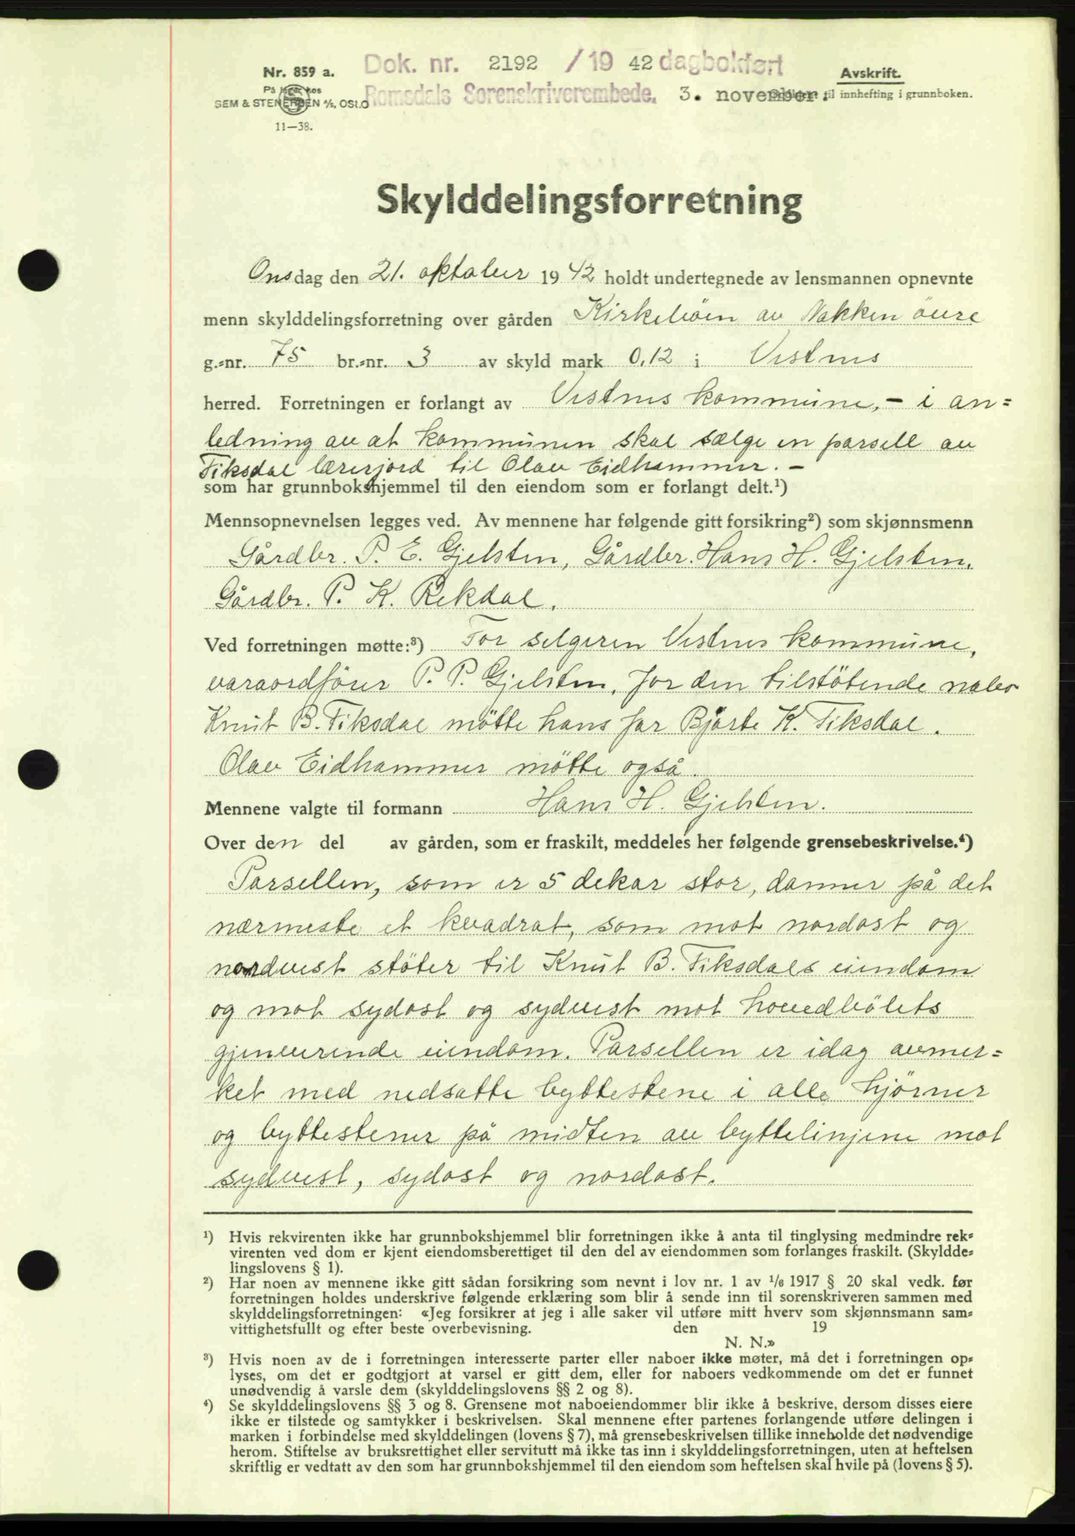 Nr. 859 a.
På lager hos
SEM & STENERSEN A/S, OSLO
11—38.
Dok. nr. 2192 / 19 42 dagbokført
Romsdals Sorenskriverembede. 3. november.
Avskrift.
til innhefting i grunnboken.
Skylddelingsforretning
Onsdag den 21. oktober 19 42 holdt undertegnede av lensmannen opnevnte
menn skylddelingsforretning over gården Kirkebøen av Nakken øvre
g.-nr. 75 br.-nr. 3 av skyld mark 0,12 i Vestnes
herred. Forretningen er forlangt av Vestnes kommune, – i an=
ledning av at kommunen skal sælge en parsell av
Fiksdal lærerjord til Olav Eidhammer. –
som har grunnbokshjemmel til den eiendom som er forlangt delt.¹)
Mennsopnevnelsen legges ved. Av mennene har følgende gitt forsikring²) som skjønnsmenn
Gårdbr. P. E. Gjelsten, Gårdbr. Hans H. Gjelsten,
Gårdbr. P. K. Rekdal.
Ved forretningen møtte:³) For selgeren Vestnes kommune,
varaordfører P. P. Gjelsten, for den tilstøtende nabo
Knut B. Fiksdal møtte hans far Bjarte K. Fiksdal.
Olav Eidhammer møtte også.
Mennene valgte til formann Hans H. Gjelsten.
Over den del av gården, som er fraskilt, meddeles her følgende grensebeskrivelse.⁴)
Parsellen, som er 5 dekar stor, danner på det
nærmeste et kvadrat, som mot nordost og
nordvest støter til Knut B. Fiksdals eiendom
og mot sydost og sydvest mot hovedbølets
gjenverende eiendom. Parsellen er idag avmer=
ket med nedsatte byttestene i alle hjørner
og byttestener på midten av byttelinjene mot
sydvest, sydost og nordost.
¹) Hvis rekvirenten ikke har grunnbokshjemmel blir forretningen ikke å anta til tinglysing medmindre rek-
virenten ved dom er kjent eiendomsberettiget til den del av eiendommen som forlanges fraskilt. (Skyldde-
lingslovens § 1).
²) Har noen av mennene ikke gitt sådan forsikring som nevnt i lov nr. 1 av 1/6 1917 § 20 skal vedk. før
forretningen holdes underskrive følgende erklæring som blir å sende inn til sorenskriveren sammen med
skylddelingsforretningen: «Jeg forsikrer at jeg i alle saker vil utføre mitt hverv som skjønnsmann sam-
vittighetsfullt og efter beste overbevisning. den 19
N. N.»
³) Hvis noen av de i forretningen interesserte parter eller naboer ikke møter, må det i forretningen op-
lyses, om det er godtgjort at varsel er gitt dem, eller for naboers vedkommende om det er funnet
unødvendig å varsle dem (skylddelingslovens §§ 2 og 8).
⁴) Se skylddelingslovens §§ 3 og 8. Grensene mot naboeiendommer blir ikke å beskrive, dersom disses eiere
ikke er tilstede og samtykker i beskrivelsen. Skal mennene efter partenes forlangende utføre delingen i
marken i forbindelse med skylddelingen (lovens § 7), må grensebeskrivelsen tillike inneholde det nødvendige
herom. Stiftelse av bruksrettighet eller servitutt må ikke tas inn i skylddelingsforretningen, uten at heftelsen
skriftlig er vedtatt av den som har grunnbokshjemmel til den eiendom som heftelsen skal hvile på (lovens § 5).